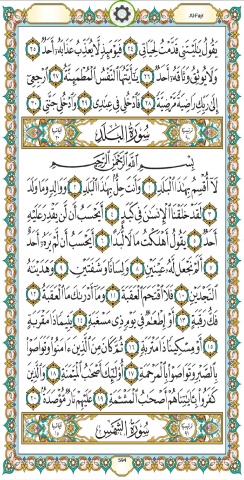 Al-Fajr
يَقُولُ يَٰلَيْتَنِى قَدَّمْتُ لِحَيَاتِى ٢٤ فَيَوْمَئِذٍ لَّا يُعَذِّبُ عَذَابَهُۥٓ أَحَدٌ ٢٥
وَلَا يُوثِقُ وَثَاقَهُۥٓ أَحَدٌ ٢٦ يَٰٓأَيَّتُهَا ٱلنَّفْسُ ٱلْمُطْمَئِنَّةُ ٢٧ ٱرْجِعِىٓ
إِلَىٰ رَبِّكِ رَاضِيَةً مَّرْضِيَّةً ٢٨ فَٱدْخُلِى فِى عِبَٰدِى ٢٩ وَٱدْخُلِى جَنَّتِى ٣٠
سُورَةُ البَلَدِ
بِسْمِ ٱللَّهِ ٱلرَّحْمَٰنِ ٱلرَّحِيمِ
لَآ أُقْسِمُ بِهَٰذَا ٱلْبَلَدِ ١ وَأَنتَ حِلٌّۢ بِهَٰذَا ٱلْبَلَدِ ٢ وَوَالِدٍ وَمَا وَلَدَ
٣ لَقَدْ خَلَقْنَا ٱلْإِنسَٰنَ فِى كَبَدٍ ٤ أَيَحْسَبُ أَن لَّن يَقْدِرَ عَلَيْهِ
أَحَدٌ ٥ يَقُولُ أَهْلَكْتُ مَالًا لُّبَدًا ٦ أَيَحْسَبُ أَن لَّمْ يَرَهُۥٓ أَحَدٌ
٧ أَلَمْ نَجْعَل لَّهُۥ عَيْنَيْنِ ٨ وَلِسَانًا وَشَفَتَيْنِ ٩ وَهَدَيْنَٰهُ
ٱلنَّجْدَيْنِ ١٠ فَلَا ٱقْتَحَمَ ٱلْعَقَبَةَ ١١ وَمَآ أَدْرَىٰكَ مَا ٱلْعَقَبَةُ ١٢
فَكُّ رَقَبَةٍ ١٣ أَوْ إِطْعَٰمٌ فِى يَوْمٍ ذِى مَسْغَبَةٍ ١٤ يَتِيمًا ذَا مَقْرَبَةٍ
١٥ أَوْ مِسْكِينًا ذَا مَتْرَبَةٍ ١٦ ثُمَّ كَانَ مِنَ ٱلَّذِينَ ءَامَنُوا۟ وَتَوَاصَوْا۟
بِٱلصَّبْرِ وَتَوَاصَوْا۟ بِٱلْمَرْحَمَةِ ١٧ أُو۟لَٰٓئِكَ أَصْحَٰبُ ٱلْمَيْمَنَةِ ١٨ وَٱلَّذِينَ
كَفَرُوا۟ بِـَٔايَٰتِنَا هُمْ أَصْحَٰبُ ٱلْمَشْـَٔمَةِ ١٩ عَلَيْهِمْ نَارٌ مُّؤْصَدَةٌۢ ٢٠
سُورَةُ الشَّمْسِ
594